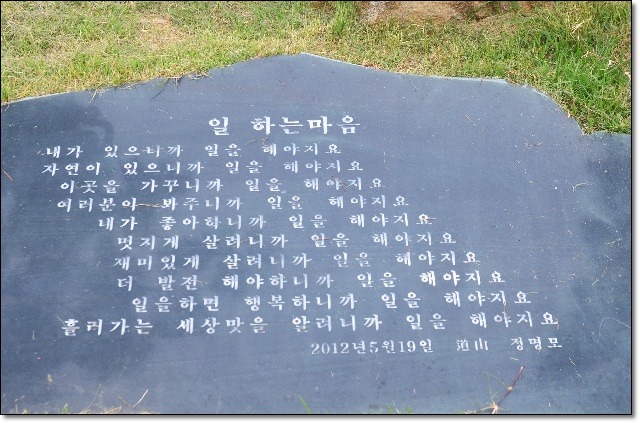 일 하는마음
내가 있으니까 일을 해야지요
자연이 있으니까 일을 해야지요
이곳을 가꾸니까 일을 해야지요
여러분이 봐주니까 일을 해야지요
내가 좋아하니까 일을 해야지요
멋지게 살려니까 일을 해야지요
재미있게 살려니까 일을 해야지요
더 발전 해야하니까 일을 해야지요
일을하면 행복하니까 일을 해야지요
흘러가는 세상맛을 알려니까 일을 해야지요
2012년5월19일 道山 정명모